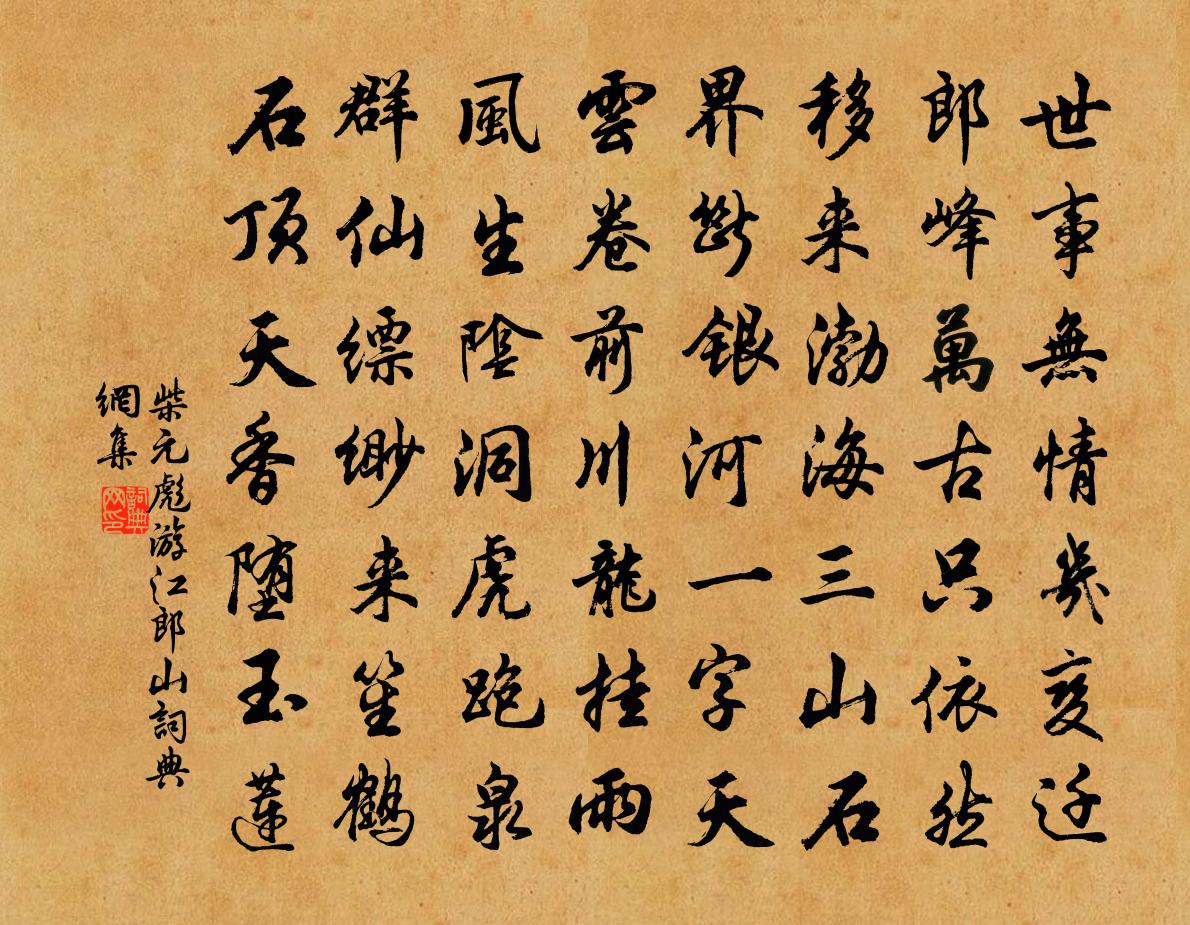 世事無情幾变迁
郎峰萬古只依然
移来渤海三山石
界斷銀河一字天
雲卷前川龍挂雨
風生陰洞虎跑泉
群仙缥缈来笙鶴
石顶天香堕玉蓮
柴元彪游江郎山詞典
網集
詞典
网印